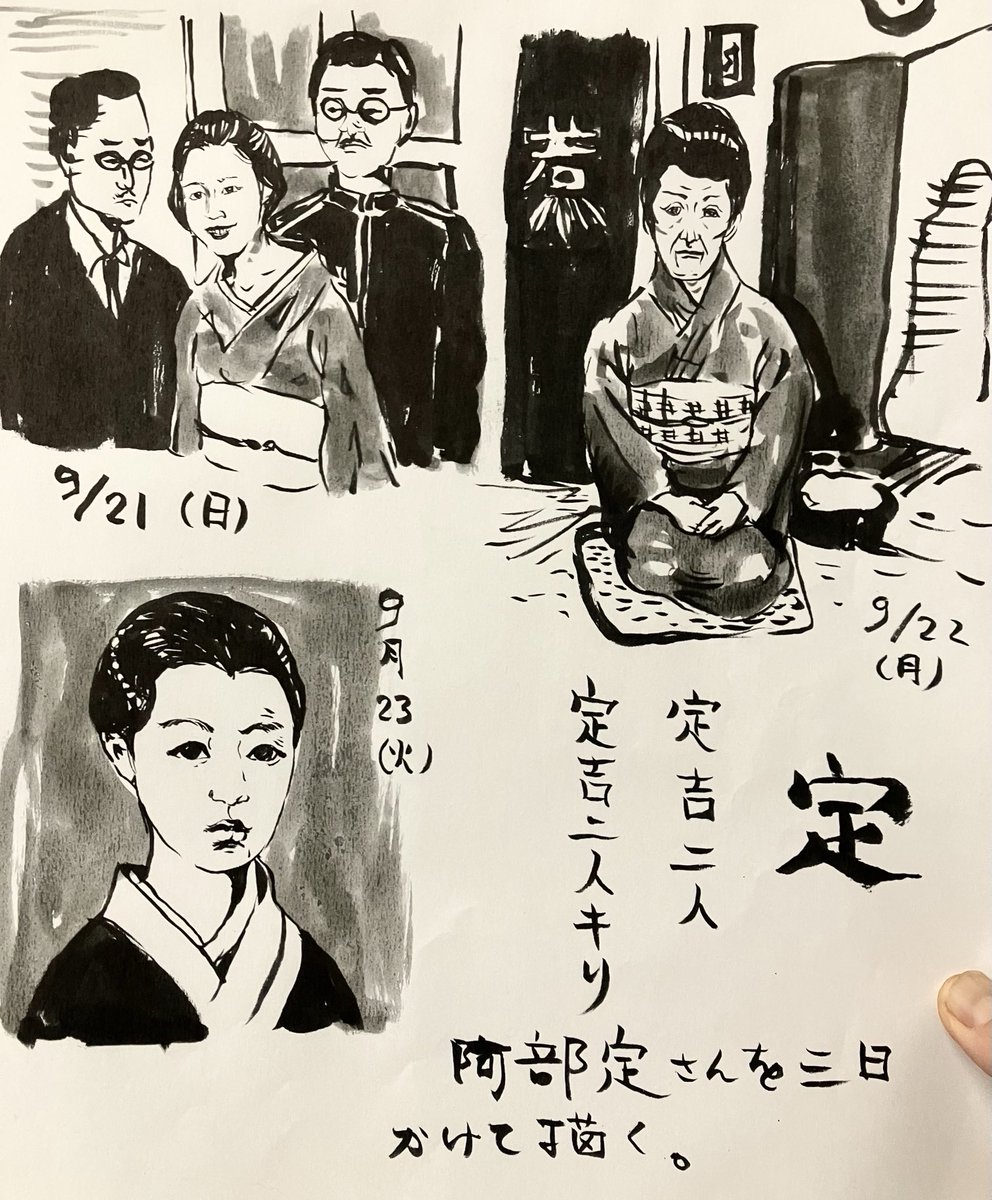 9/21（日）
若
9/22
（月）
9
月
23
（火）
定
定吉二人
定吉二人キリ
阿部定さんを三日
かけて描く。